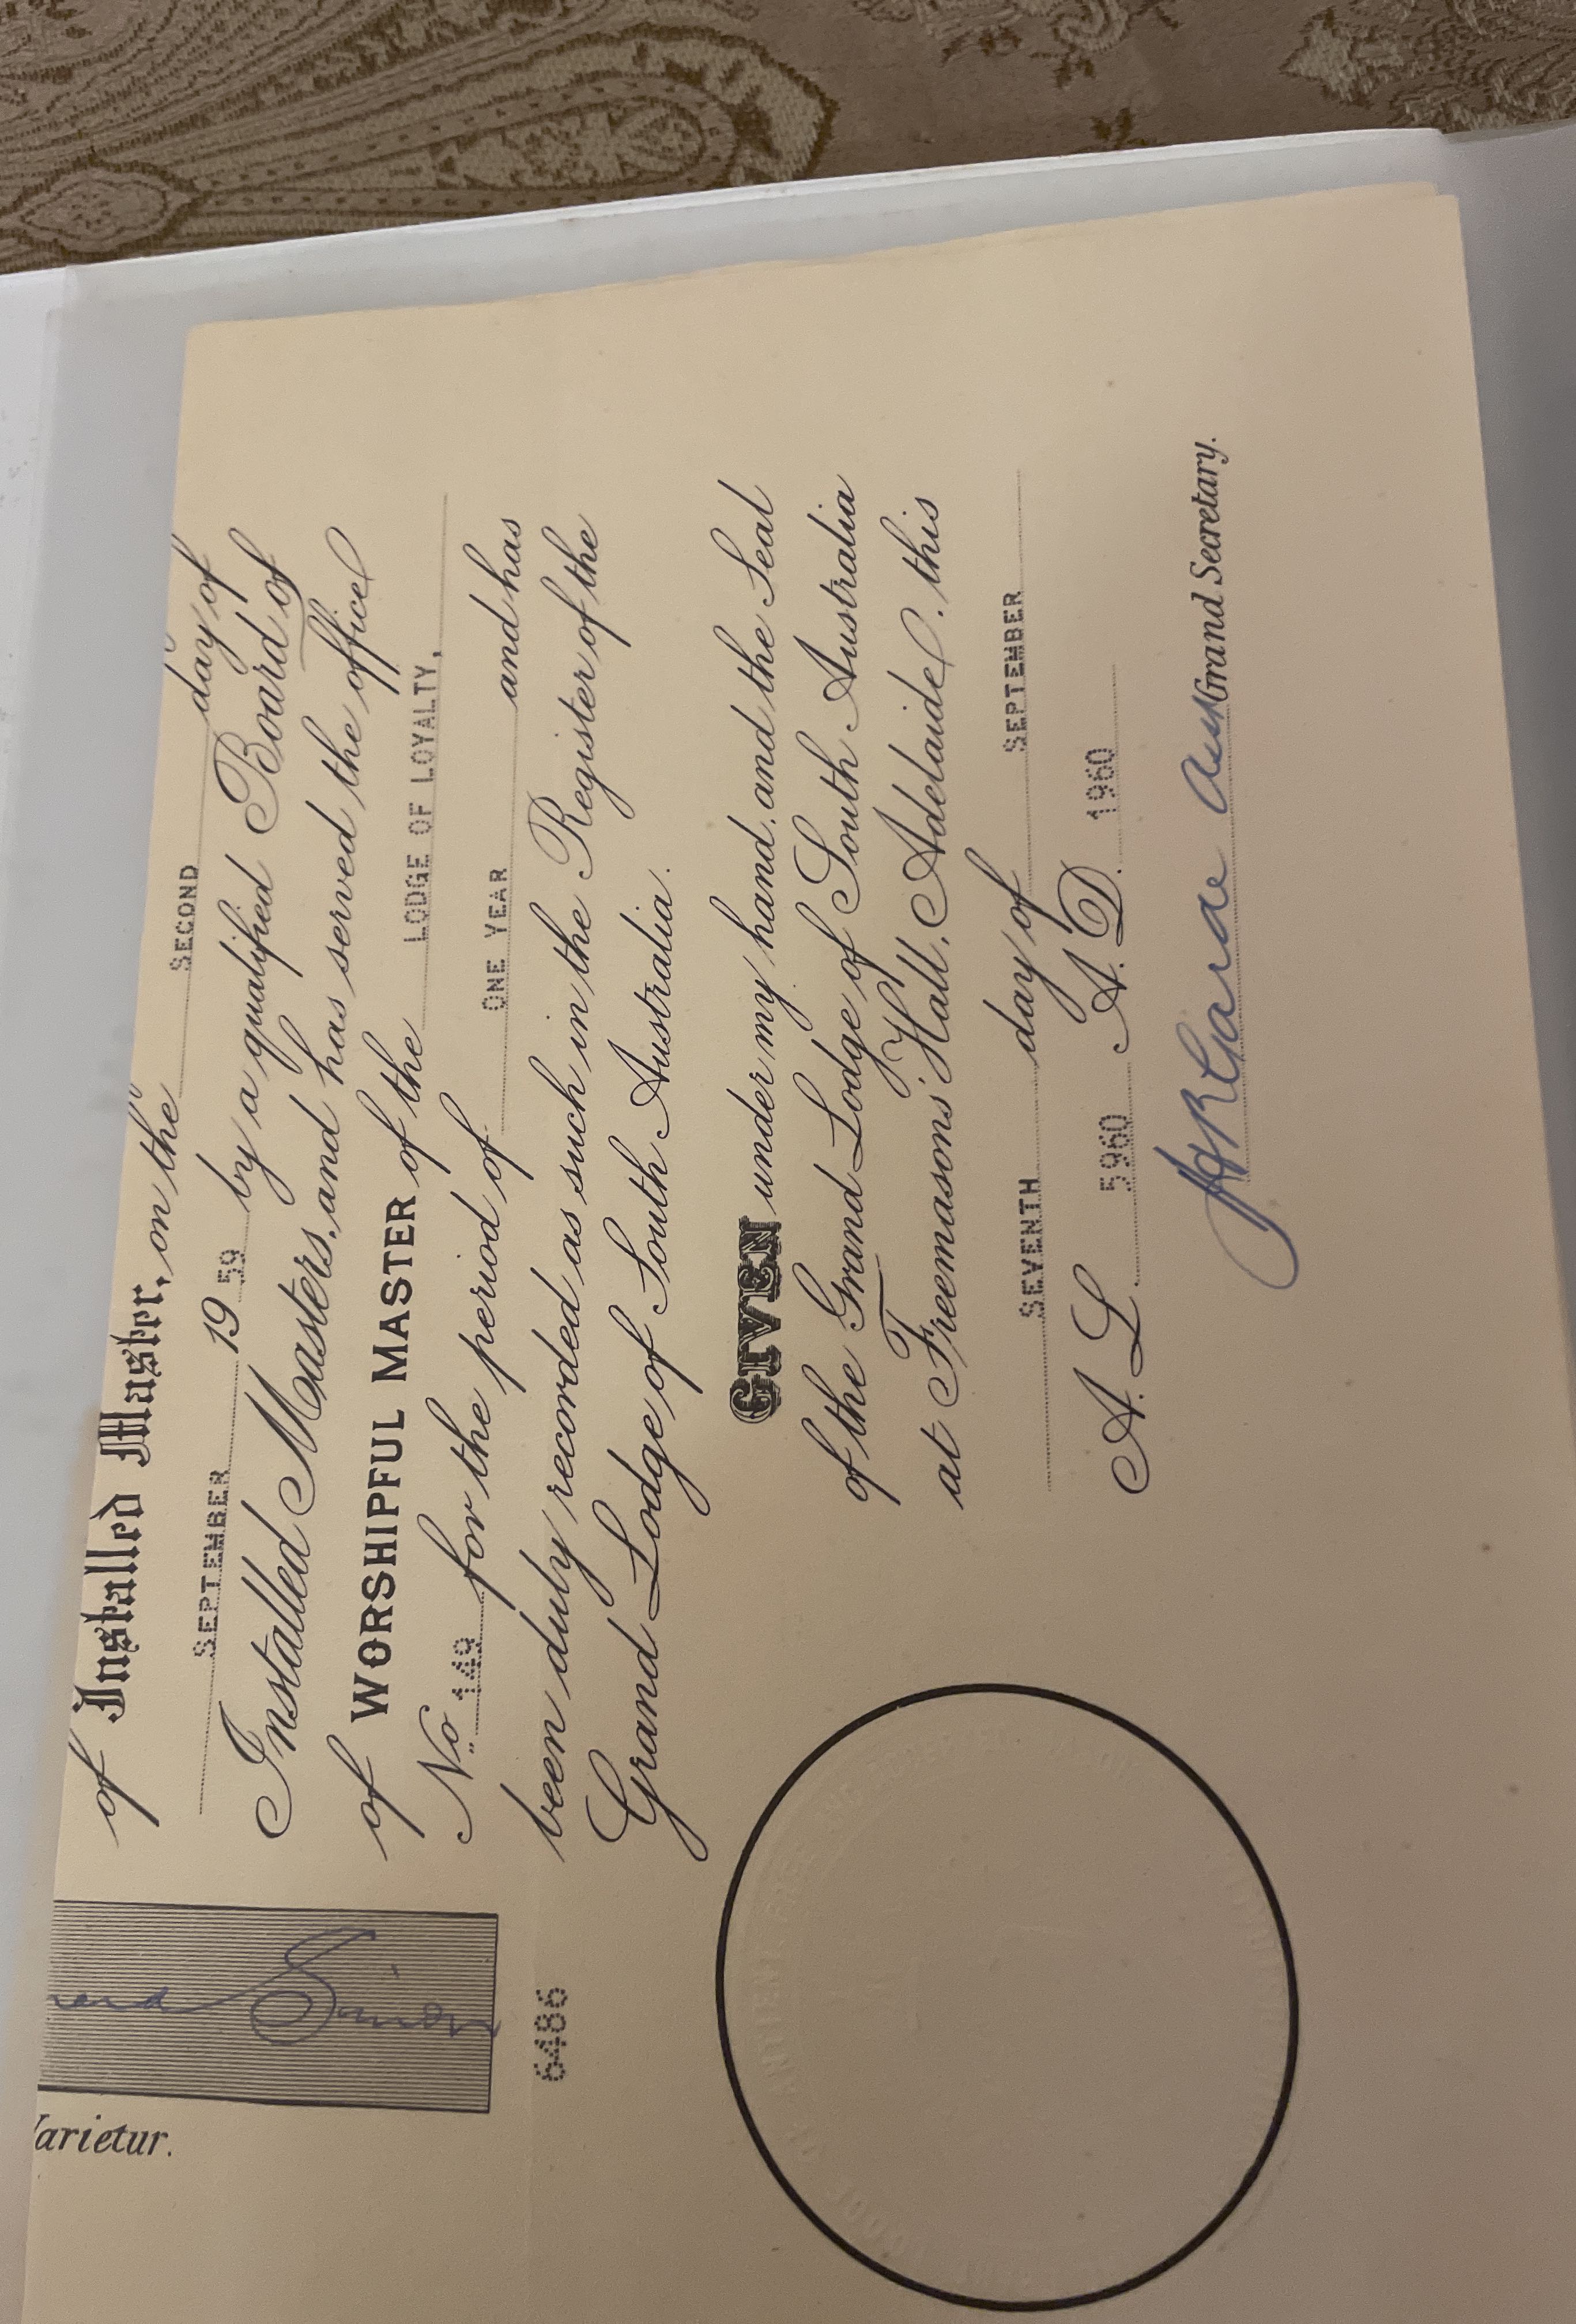 of Installed Master, on the SECOND day of
SEPTEMBER 1959 by a qualified Board of
Installed Masters, and has served the office
of WORSHIPFUL MASTER of the LODGE OF LOYALTY,
No. 149 for the period of ONE YEAR and has
been duly recorded as such in the Register of the
Grand Lodge of South Australia.
GIVEN under my hand, and the Seal
of the Grand Lodge of South Australia
at Freemasons' Hall, Adelaide, this
SEVENTH day of SEPTEMBER
A.L. 5960 A.D. 1960
Grand Secretary.
Simon
Varietur.
6486